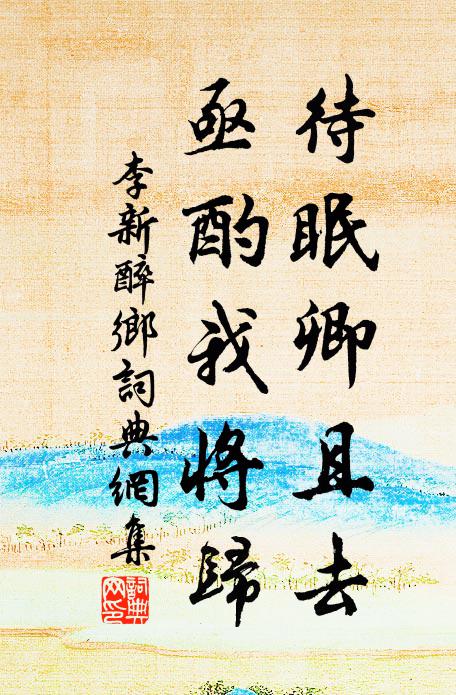 待眠卿且去
亟酌我將歸
李新醉鄉詞典網集
詞典网印